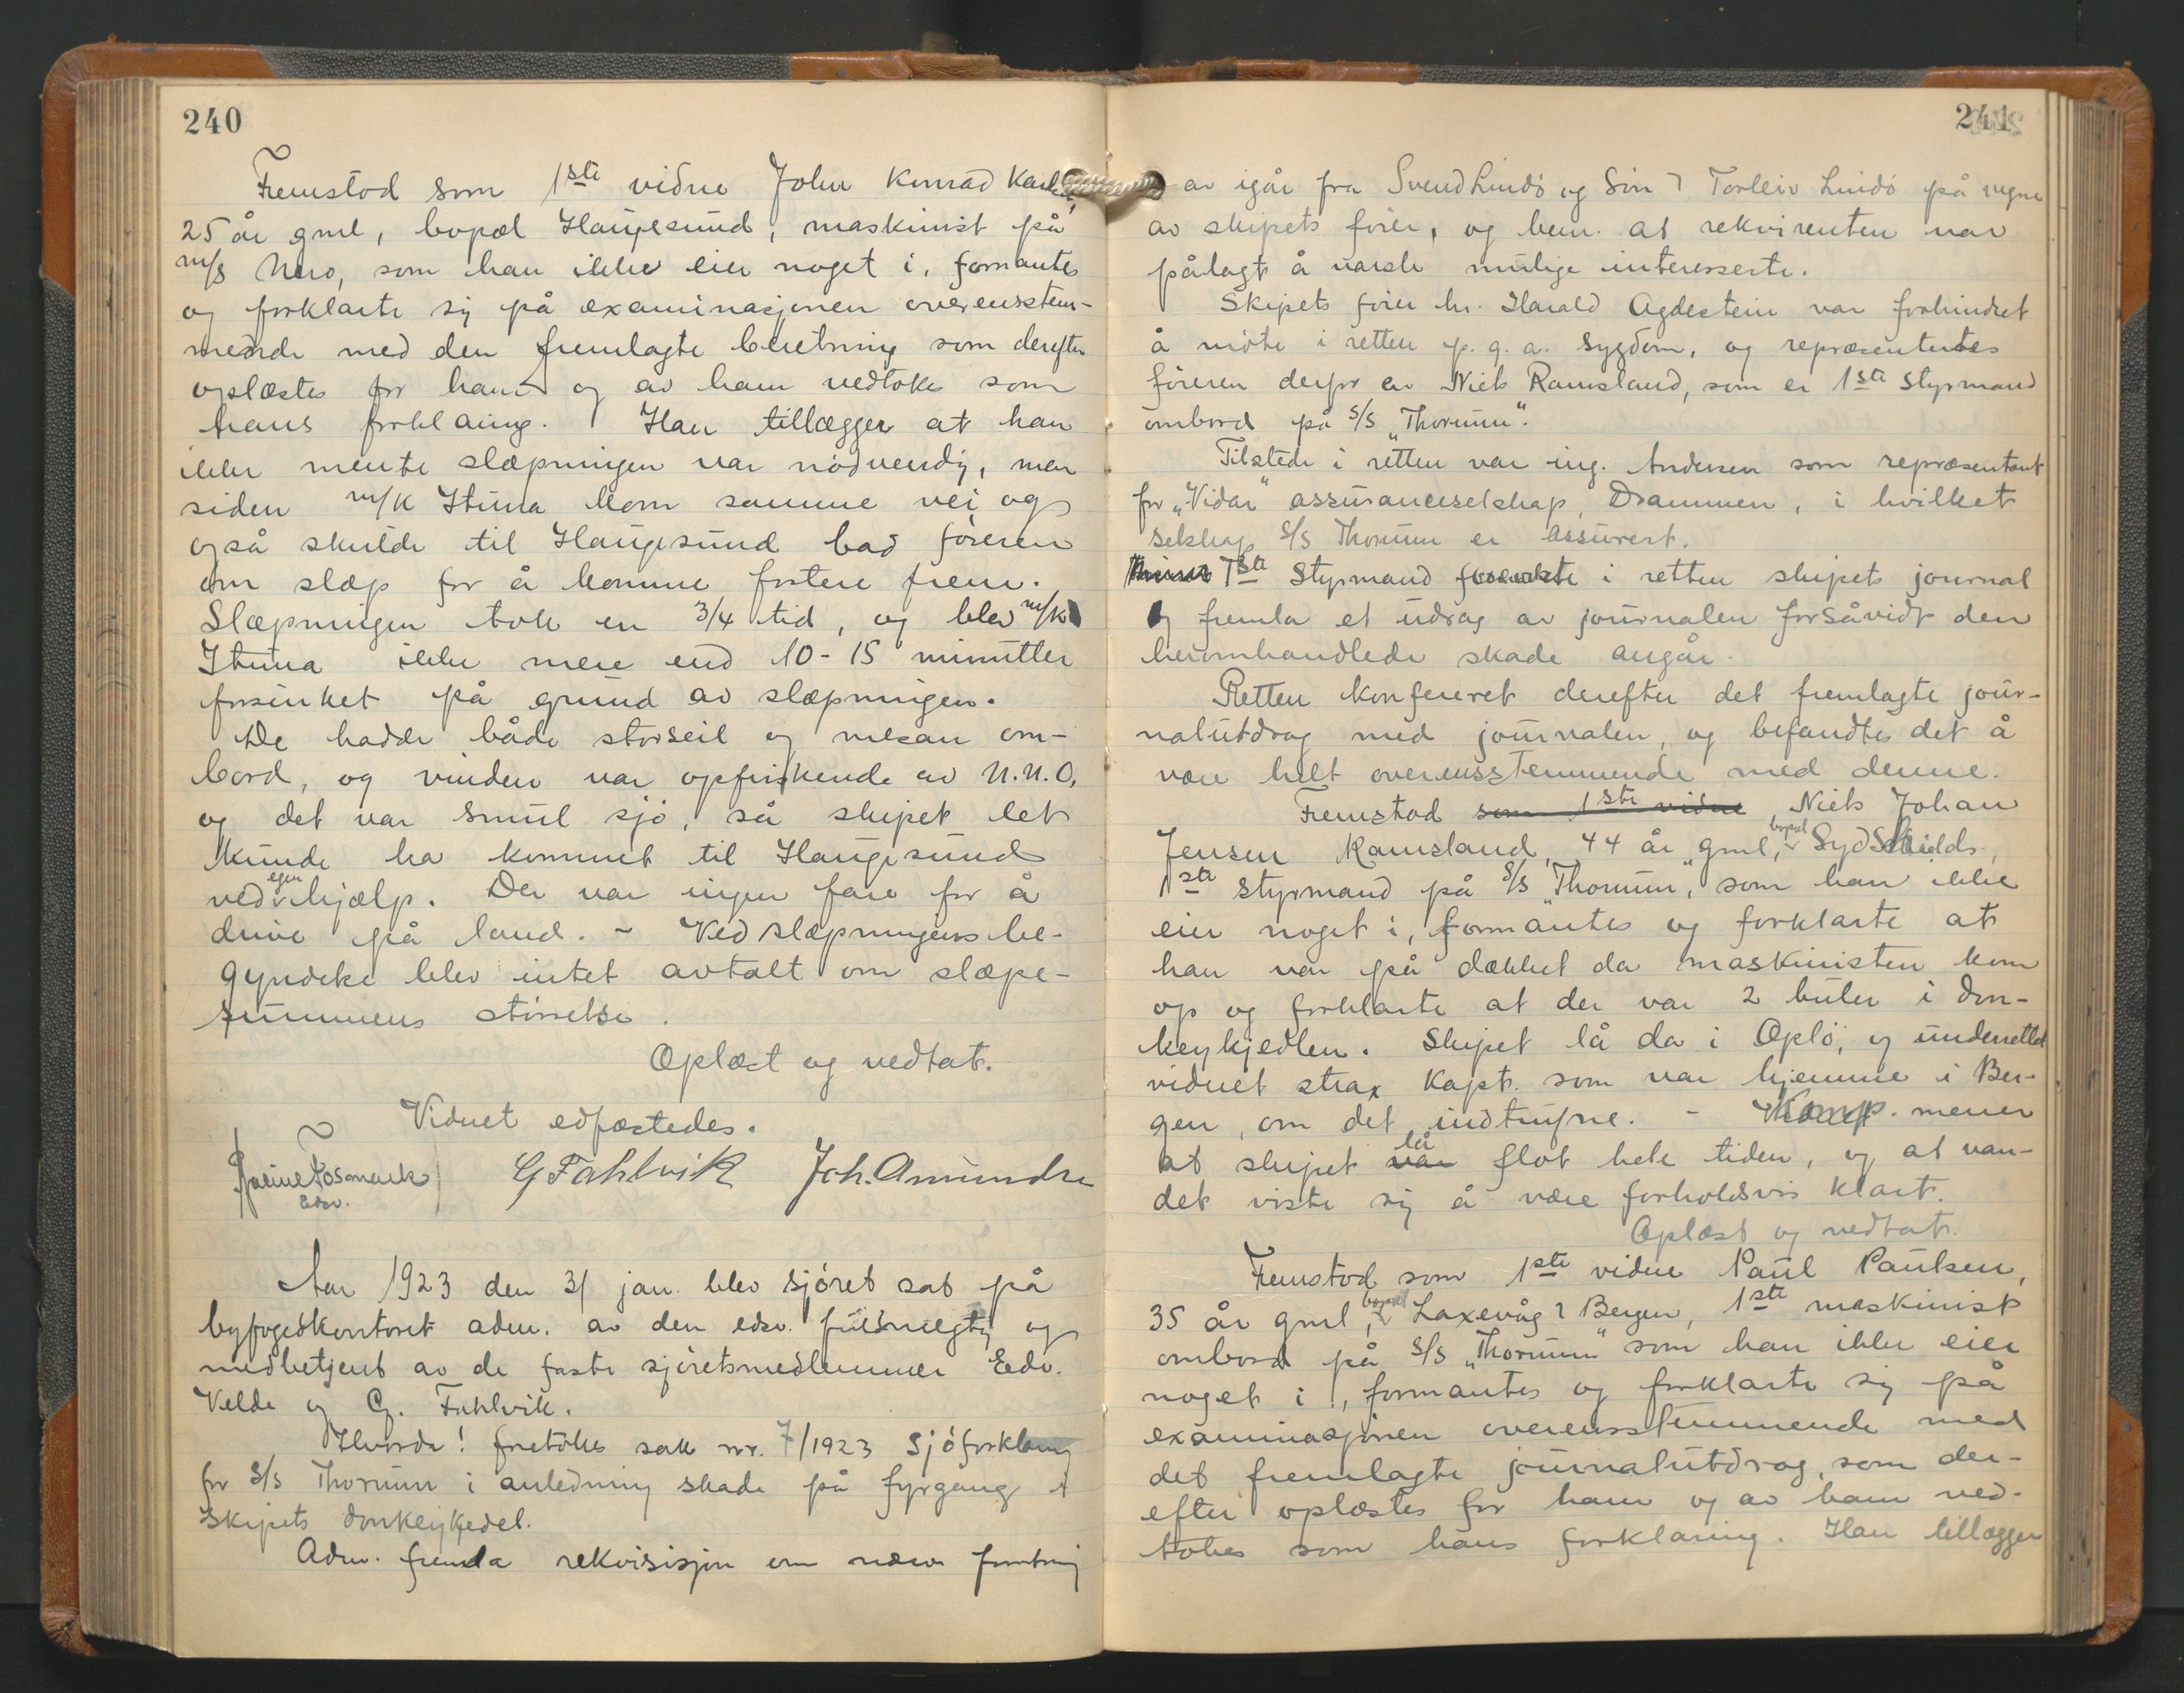 240
Fremstod som 1ste vidne John Konrad
25 år gml, bopæl Haugesund, maskinist på
m/s Nero, som han ikke eier noget i, formantes
og forklarte sig på examinasjonen overensstem-
mende med den fremlagte beretning som derefter
oplæstes for ham og av ham vedtokes som
hans forklaring. Han tillægger at han
ikke mente slæpningen var nødvendig, men
siden m/k Ituna kom samme vei og
også skulde til Haugesund bad føreren
om slæp for å komme fortere frem.
Slæpningen tok en 3/4 tid, og blev m/k
Ituna ikke mere end 10-15 minutter
forsinket på grund av slæpningen.
De hadde både storseil og mesan om-
bord, og vinden var opfriskende av N.N.O,
og det var smul sjø, så skipet let
kunde ha kommet til Haugesund
ved egen hjælp. Der var ingen fare for å
drive på land. - Ved slæpningens be-
gyndelse blev intet avtalt om slæpe-
summens størrelse.
Oplæst og vedtat.
Vidnet edfæstedes.
Fosmark G Fahlvik Joh. Amundsen
Edsv.
Aar 1923 den 31 jan. blev sjøret sat på
byfogedkontoret adm. av den edsv. fuldmegtig og
medbetjent av de faste sjøretsmedlemmer Edv.
Velde og G. Fahlvik.
Hvorda! foretokes sak nr. 7/1923 Sjøforklaring
for S/S Thorunn i anledning skade på fyrgang i
skipets donkeykjedel.
Adm. fremla rekvisisjon om nærv. forretning
241
av igår fra Svend Lindø og Søn v Torleiv Lindø på vegne
av skipets fører, og bem. at rekvirenten var
pålagt å varsle mulige interesserte.
Skipets fører hr. Harald Agdestein var forhindret
å møte i retten p.g.a. sygdom, og repræsentertes
føreren derfor av Niels Ramsland, som er 1ste styrmand
ombord på S/S "Thorunn".
Tilstede i retten var ing. Andersen som repræsentant
for "Vidar" assuranceselskap, Drammen, i hvilket
selskap S/S Thorunn er assurert.
1ste Styrmand fremlakte i retten skipets journal
og fremla et utdrag av journalen forsåvidt den
heromhandlede skade angår.
Retten konfereret derefter det fremlagte jour-
nalutdrag med journalen, og befandtes det å
være helt overensstemmende med denne.
Fremstod som 1ste vidne Niels Johan
Jensen Ramsland, 44 år gml, bopæl Syd Shields,
1ste styrmand på S/S "Thorunn", som han ikke
eier noget i, formantes og forklarte at
han var på dækket da maskinisten kom
op og forklarte at der var 2 buler i don-
keykjedlen. Skipet lå da i Oplø, og underrettet
vidnet strax kapt. som var hjemme i Ber-
gen, om det indtrufne. - Komp. mener
at skipet var lå flot hele tiden, og at van-
det viste sig å være forholdsvis klart.
Oplæst og vedtat.
Fremstod som 1ste vidne Paul Paulsen,
35 år gml, bopæl Laxevåg v Bergen, 1ste maskinist
ombord på S/S "Thorunn" som han ikke eier
noget i, formantes og forklarte sig på
examinasjonen overensstemmende med
det fremlagte journalutdrag, som der-
efter oplæstes for ham og av ham ved-
tokes som hans forklaring. Han tillægger